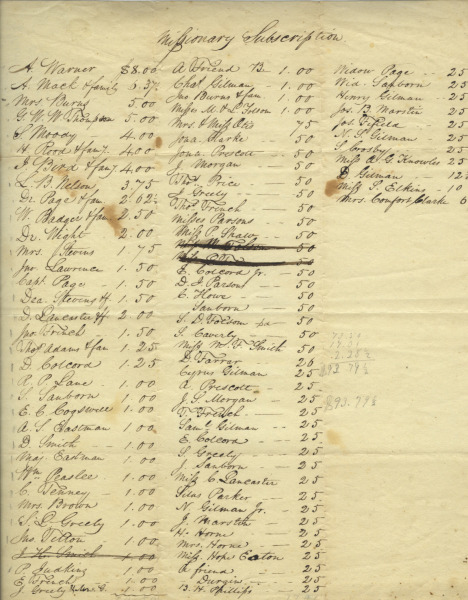 Missionary Subscription
A Warner $8.00
A Mack & family 6.37
Mrs Burns 5.00
G. W. W. Thompson 5.00
S Moody 4.00
H Rood & fam'y 4.00
J Bird & fam'y 4.00
L B Nelson 3.75
Dr Page & fam 2.62½
W Badger & fam 2.50
Dr. Wight 2.00
Mrs. Stevens 1.75
Jno Lawrence 1.50
Capt Page 1.50
Dea Stevens H. 1.50
D. Lancaster H 2.00
Jno French 1.50
Thos Adams & fam 1.25
D. Colcord 1.25
A. P. Lane 1.00
S. Sanborn 1.00
E. C. Cogswell 1.00
A. S. Eastman 1.00
D. Smith 1.00
Maj. Eastman 1.00
Wm Peaslee 1.00
C. Tenney 1.00
Mrs Brown 1.00
S. L. Greely 1.00
Jns. Tilton 1.00
J. H. Smith 1.00
P Judkins 1.00
E. French 1.00
J. Greely 1.00
A Friend B. 1.00
Chas. Gilman 1.00
Jno Burns & fam 1.00
Misses M. & L. Folsom 1.00
Mrs. & Miss 75
Jona. Clarke 50
Jona. Prescott 50
J Morgan 50
Thos. Price 50
J Greely 50
Thos French 50
Misses Parsons 50
Miss P Shaw 50
50
50
E. Colcord Jr. 50
D. J Parsons 50
E. Howe 50
Sanborn 50
S. D. Folsom pa 50
S. Caverly 50
Miss M. F. Smith 50
D Farrar 26
Cyrus Gilman 25
A Prescott 25
J. G. Morgan 25
T. French 25
Saml. Gilman 25
E Colcord 25
S. Greely 25
J. Sanborn 25
Miss C Lancaster 25
Silas Parker 25
N. Gilman Jr. 25
J. Marston 25
H. Horne 25
Mrs. Horne 25
Miss Hope Eaton 25
A friend 25
Durgin 25
B. H. Phillips 25
Widow Page 25
Wid. Sanborn 25
Henry Gilman 25
Jos. B. Marston 25
Jos. Fifield 25
N. S. Gilman 25
S Crosby 25
Miss A. G. Knowles 25
D Gilman 12
Miss S. Elkins 10
Mrs. Comfort Clarke 6
$93.79½
$93.79½